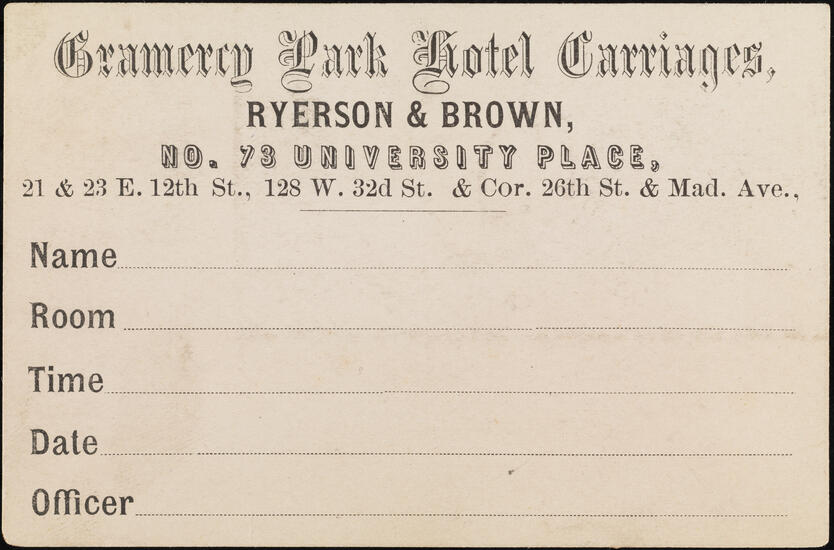 Gramercy Park Hotel Carriages,
RYERSON & BROWN,
NO. 73 UNIVERSITY PLACE,
21 & 23 E. 12th St., 128 W. 32d St. & Cor. 26th St. & Mad. Ave.,
Name
Room
Time
Date
Officer